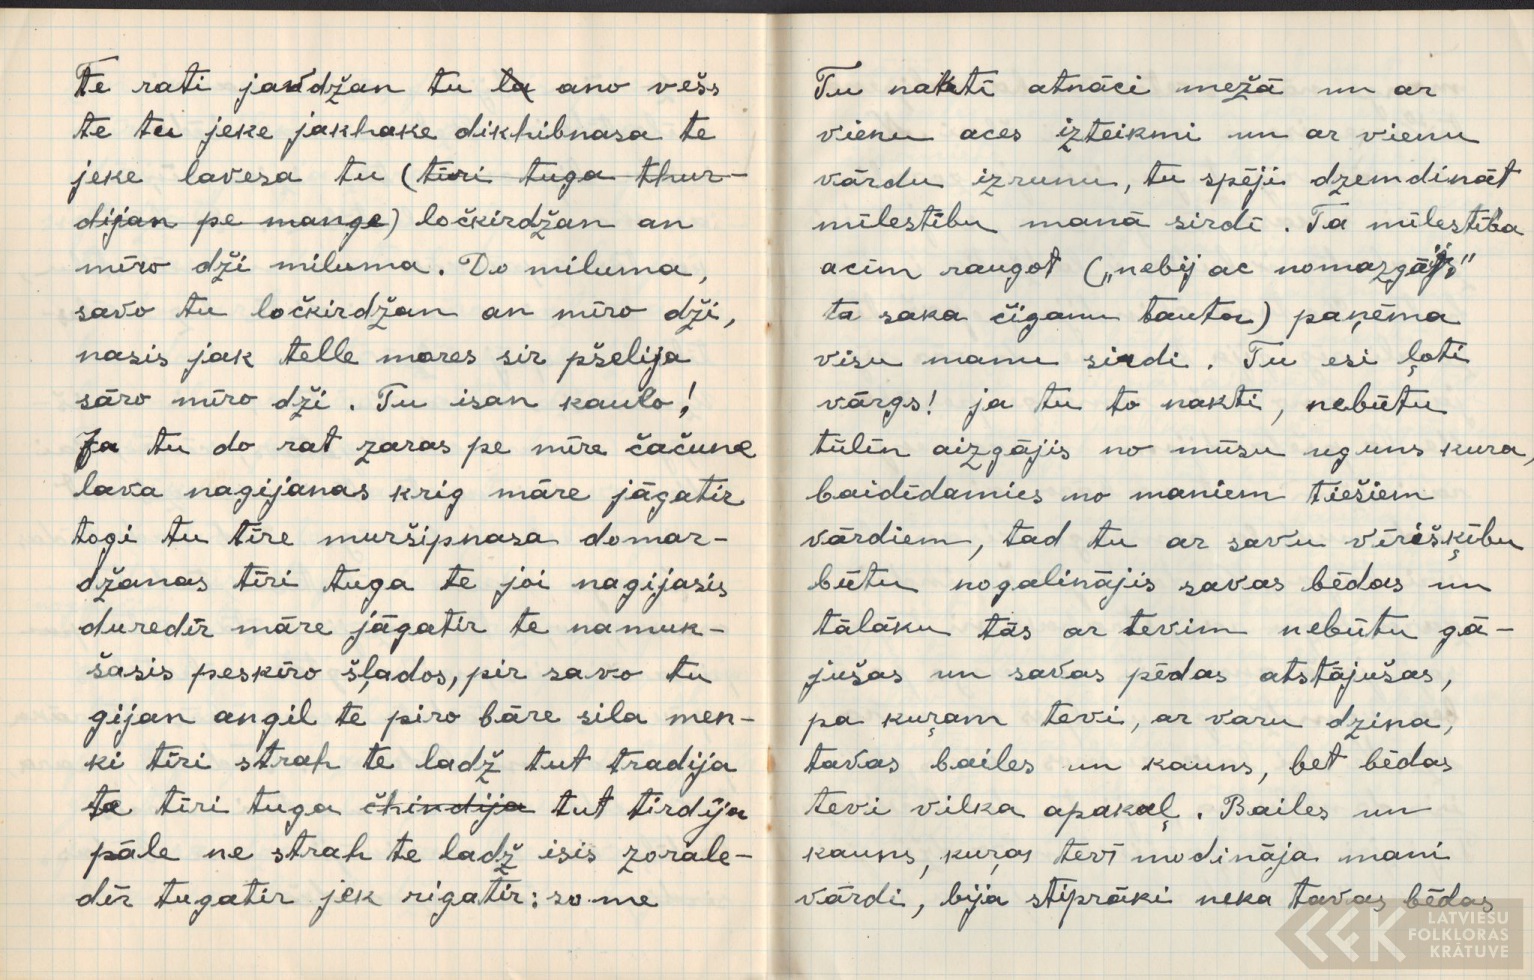 Te rati javdžan tu ta ano vešs
te tu jeke jakhake dikhibnasa te
jeke lavesa tu (tīri tuga thur-
dijan pe mange) ločkirdžan an
mīro dži miluma. Do miluma,
savo tu ločkirdžan an mīro dži,
nasis jak telle mores sir pšelija
sāro mīro dži. Tu isan kaulo!
Ja tu do rat zaras pe mīre čačune
lava nagijanas krig māre jāgatir
togi tu tīre muršipnasa domar-
džanas tīri tuga te joi nagijasis
duredīr māre jāgatir te namuk-
šasis peskīro šļados, pir savo tu
gijan angil te piro bāre sila men-
ki tīri strah te ladž tut tradija
te tīri tuga čhindija tut tirdija
pāle ne strah te ladž isis zorale-
dīr tugatir jek rigatir: so me
Tu naktī atnāci mežā un ar
vienu aces izteikmi un ar vienu
vārdu izrunu, tu spēji dzemdināt
mīlestību manā sirdī. Tā mīlestība
acīm raugot („nebij ac nomazgāji,"
ta saka čiganu tauta) paņēma
visu manu sirdi. Tu esi ļoti
vārgs! ja tu to nakti, nebūtu
tūlīn aizgājis no mūsu uguns kura,
baidīdamies no maniem tiešiem
vārdiem, tad tu ar savu vīrišķību
būtu nogalinājis savas bēdas un
tālāku tās ar tevim nebūtu gā-
jušas un savas pēdas atstājušas,
pa kuŗam tevi, ar varu dzina,
tavas bailes un kauns, bet bēdas
tevi vilka apakaļ. Bailes un
kauns, kuŗas tevī modināja mani
vārdi, bija stiprāki neka tavas bēdas
LATVIEŠU
FOLKLORAS
KRĀTUVE